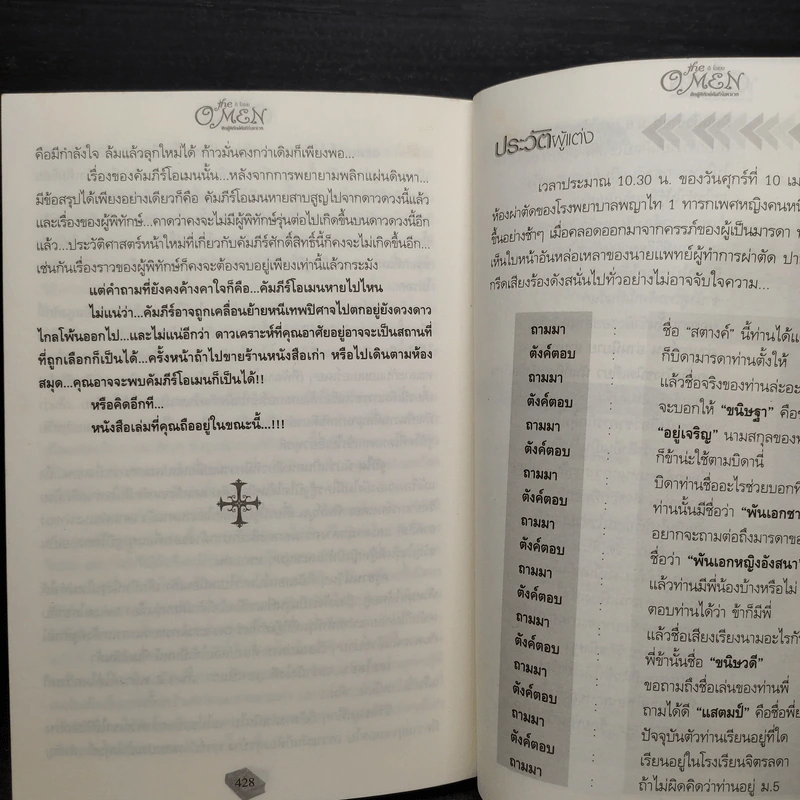 the
ดิ โอเมน
OMEN
คือมีกำลังใจ ล้มแล้วลุกใหม่ได้ ก้าวมั่นคงกว่าเดิมก็เพียงพอ...
เรื่องของคัมภีร์โอเมนนั้น...หลังจากการพยายามพลิกแผ่นดินหา...
มีข้อสรุปได้เพียงอย่างเดียวก็คือ คัมภีร์โอเมนหายสาบสูญไปจากดาวดวงนี้แล้ว
และเรื่องของผู้พิทักษ์...คาดว่าคงจะไม่มีผู้พิทักษ์รุ่นต่อไปเกิดขึ้นบนดาวดวงนี้อีก
แล้ว...ประวัติศาสตร์หน้าใหม่ที่เกี่ยวกับคัมภีร์ศักดิ์สิทธิ์นี้ก็คงจะไม่เกิดขึ้นอีก...
เช่นกันเรื่องราวของผู้พิทักษ์ก็คงจะต้องจบอยู่เพียงเท่านี้แล้วกระมัง
แต่คำถามที่ยังคงค้างคาใจก็คือ...คัมภีร์โอเมนหายไปไหน
ไม่แน่ว่า...คัมภีร์อาจถูกเคลื่อนย้ายหนีเทพปีศาจไปตกอยู่ยังดวงดาว
ไกลโพ้นออกไป...และไม่แน่อีกว่า ดาวเคราะห์ที่คุณอาศัยอยู่อาจจะเป็นสถานที่
ที่ถูกเลือกก็เป็นได้...ครั้งหน้าถ้าไปขายร้านหนังสือเก่า หรือไปเดินตามห้อง
สมุด...คุณอาจจะพบคัมภีร์โอเมนก็เป็นได้!!
หรือคิดอีกที...
หนังสือเล่มที่คุณถืออยู่ในขณะนี้...!!!
428
the
ดิ โอเมน
OMEN
ประวัติผู้แต่ง
เวลาประมาณ 10.30 น. ของวันศุกร์ที่ 10 เม
ห้องผ่าตัดของโรงพยาบาลพญาไท 1 ทารกเพศหญิงคนหนึ
ขึ้นอย่างช้าๆ เมื่อคลอดออกมาจากครรภ์ของผู้เป็นมารดา
เห็นใบหน้าอันหล่อเหลาของนายแพทย์ผู้ทำการผ่าตัด ปา
กรีดเสียงร้องดังสนั่นไปทั่วอย่างไม่อาจจับใจความ...
ถามมา : ชื่อ “สตางค์” นี้ท่านได้แ
ตังค์ตอบ : ก็บิดามารดาท่านตั้งให้
ถามมา : แล้วชื่อจริงของท่านล่ะอะ
ตังค์ตอบ : จะบอกให้ “ขนิษฐา” คือช
ถามมา : “อยู่เจริญ” นามสกุลของท
ตังค์ตอบ : ก็ข้าน่ะใช้ตามบิดานี่
ถามมา : บิดาท่านชื่ออะไรช่วยบอกที
ตังค์ตอบ : ท่านนั้นมีชื่อว่า “พันเอกชา
ถามมา : อยากจะถามต่อถึงมารดาขอ
ตังค์ตอบ : ชื่อว่า “พันเอกหญิงอังสนา”
ถามมา : แล้วท่านมีพี่น้องบ้างหรือไม่
ตังค์ตอบ : ตอบท่านได้ว่า ข้าก็มีพี่
ถามมา : แล้วชื่อเสียงเรียงนามอะไรกั
ตังค์ตอบ : พี่ข้านั้นชื่อ “ขนิษวดี”
ถามมา : ขอถามถึงชื่อเล่นของท่านพี่
ตังค์ตอบ : ถามได้ดี “แสตมป์” คือชื่อพี่
ถามมา : ปัจจุบันตัวท่านเรียนอยู่ที่ใด
ตังค์ตอบ : เรียนอยู่ในโรงเรียนจิตรลดา
ถามมา : ถ้าไม่ผิดคิดว่าท่านอยู่ ม.5